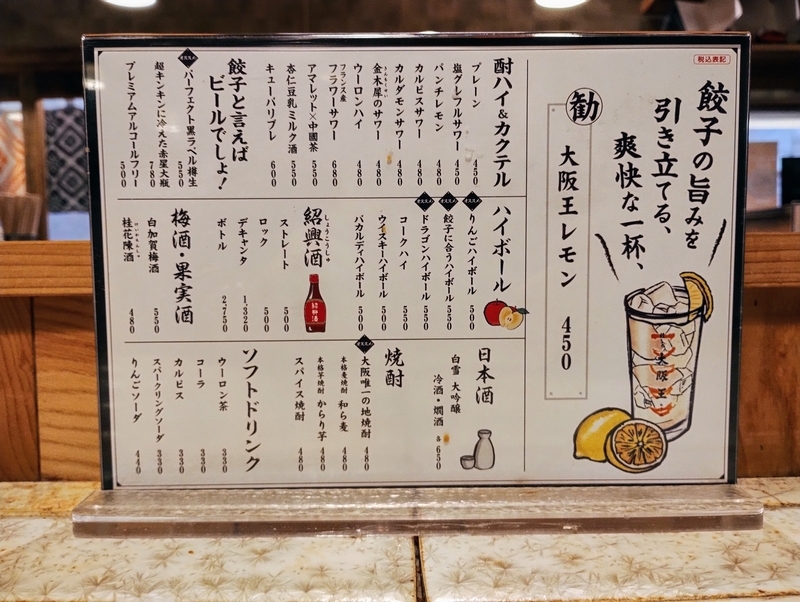 税込表記
餃子の旨みを
引き立てる、
爽快な一杯、
勧
大阪王レモン 450
大阪王
酎ハイ&カクテル
プレーン 450
塩グレフルサワー 450
パンチレモン 480
カルピスサワー 480
カルダモンサワー 480
金木犀のサワー 480
ウーロンハイ 480
フランス産
フラワーサワー 680
アマレット×中國茶 550
杏仁豆乳ミルク酒 550
キューバリブレ 600
餃子と言えば
ビールでしょ!
オススメ!
パーフェクト黒ラベル樽生 550
超キンキンに冷えた赤星大瓶 780
プレミアムアルコールフリー 500
ハイボール
オススメ!
りんごハイボール 500
オススメ!
餃子に合うハイボール 550
オススメ!
ドラゴンハイボール 550
コークハイ 550
ウイスキーハイボール 500
バカルディハイボール 500
紹興酒
しょうこうしゅ
紹興酒
ストレート 500
ロック 500
デキャンタ 1,320
ボトル 2,750
梅酒・果実酒
白加賀梅酒 550
桂花陳酒 480
日本酒
白雪 大吟醸
冷酒・燗酒 各650
焼酎
オススメ!
大阪唯一の地焼酎 480
本格麦焼酎 和ら麦 480
本格芋焼酎 からり芋 480
スパイス焼酎 480
ソフトドリンク
ウーロン茶 330
コーラ 330
カルピス 330
スパークリングソーダ 330
りんごソーダ 440